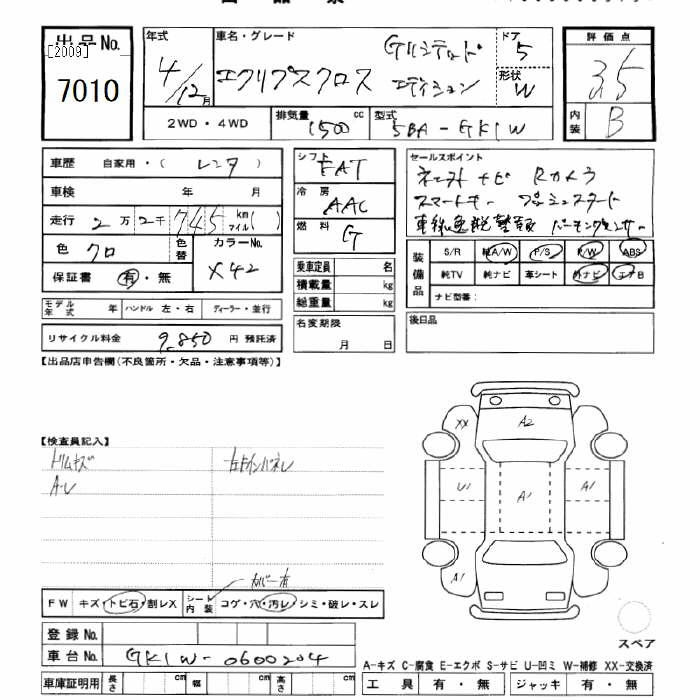 出品No.
[2009]
7010
年式 4/12月
車名・グレード エクリプスクロス Gリミテッド エディション
ドア 5
形状 W
2WD・4WD
排気量 1500 cc
型式 5BA-GK1W
評価点 3.5
内装 B
車歴 自家用・(レンタ)
車検 年 月
走行 2万2千745 km マイル( )
色 クロ 色替 カラーNo. X42
保証書 有・無
モデル年式 年 ハンドル 左・右 ディーラー・並行
リサイクル料金 9,850 円 預託済
シフト FAT
冷房 AAC
燃料 G
乗車定員 名
積載量 kg
総重量 kg
名変期限 月 日
セールスポイント
ナビ Rカメラ
スマートキー プッシュスタート
装備品
S/R 純A/W P/S P/W ABS
純TV 純ナビ 革シート 外ナビ エアB
ナビ型番:
後日品
【出品店申告欄(不良箇所・欠品・注意事項等)】
【検査員記入】
トリムキズ
A・U
XX A2
U1 A1 A1
A1
スペア
カバー有
FW キズ・トビ石・割レX シート内装 コゲ・穴・汚レ・シミ・破レ・スレ
登録No.
車台No. GK1W-0600204
車庫証明用 長さ cm 幅 cm 高さ cm
A-キズ C-腐食 E-エクボ S-サビ U-凹ミ W-補修 XX-交換済
工具 有・無 ジャッキ 有・無